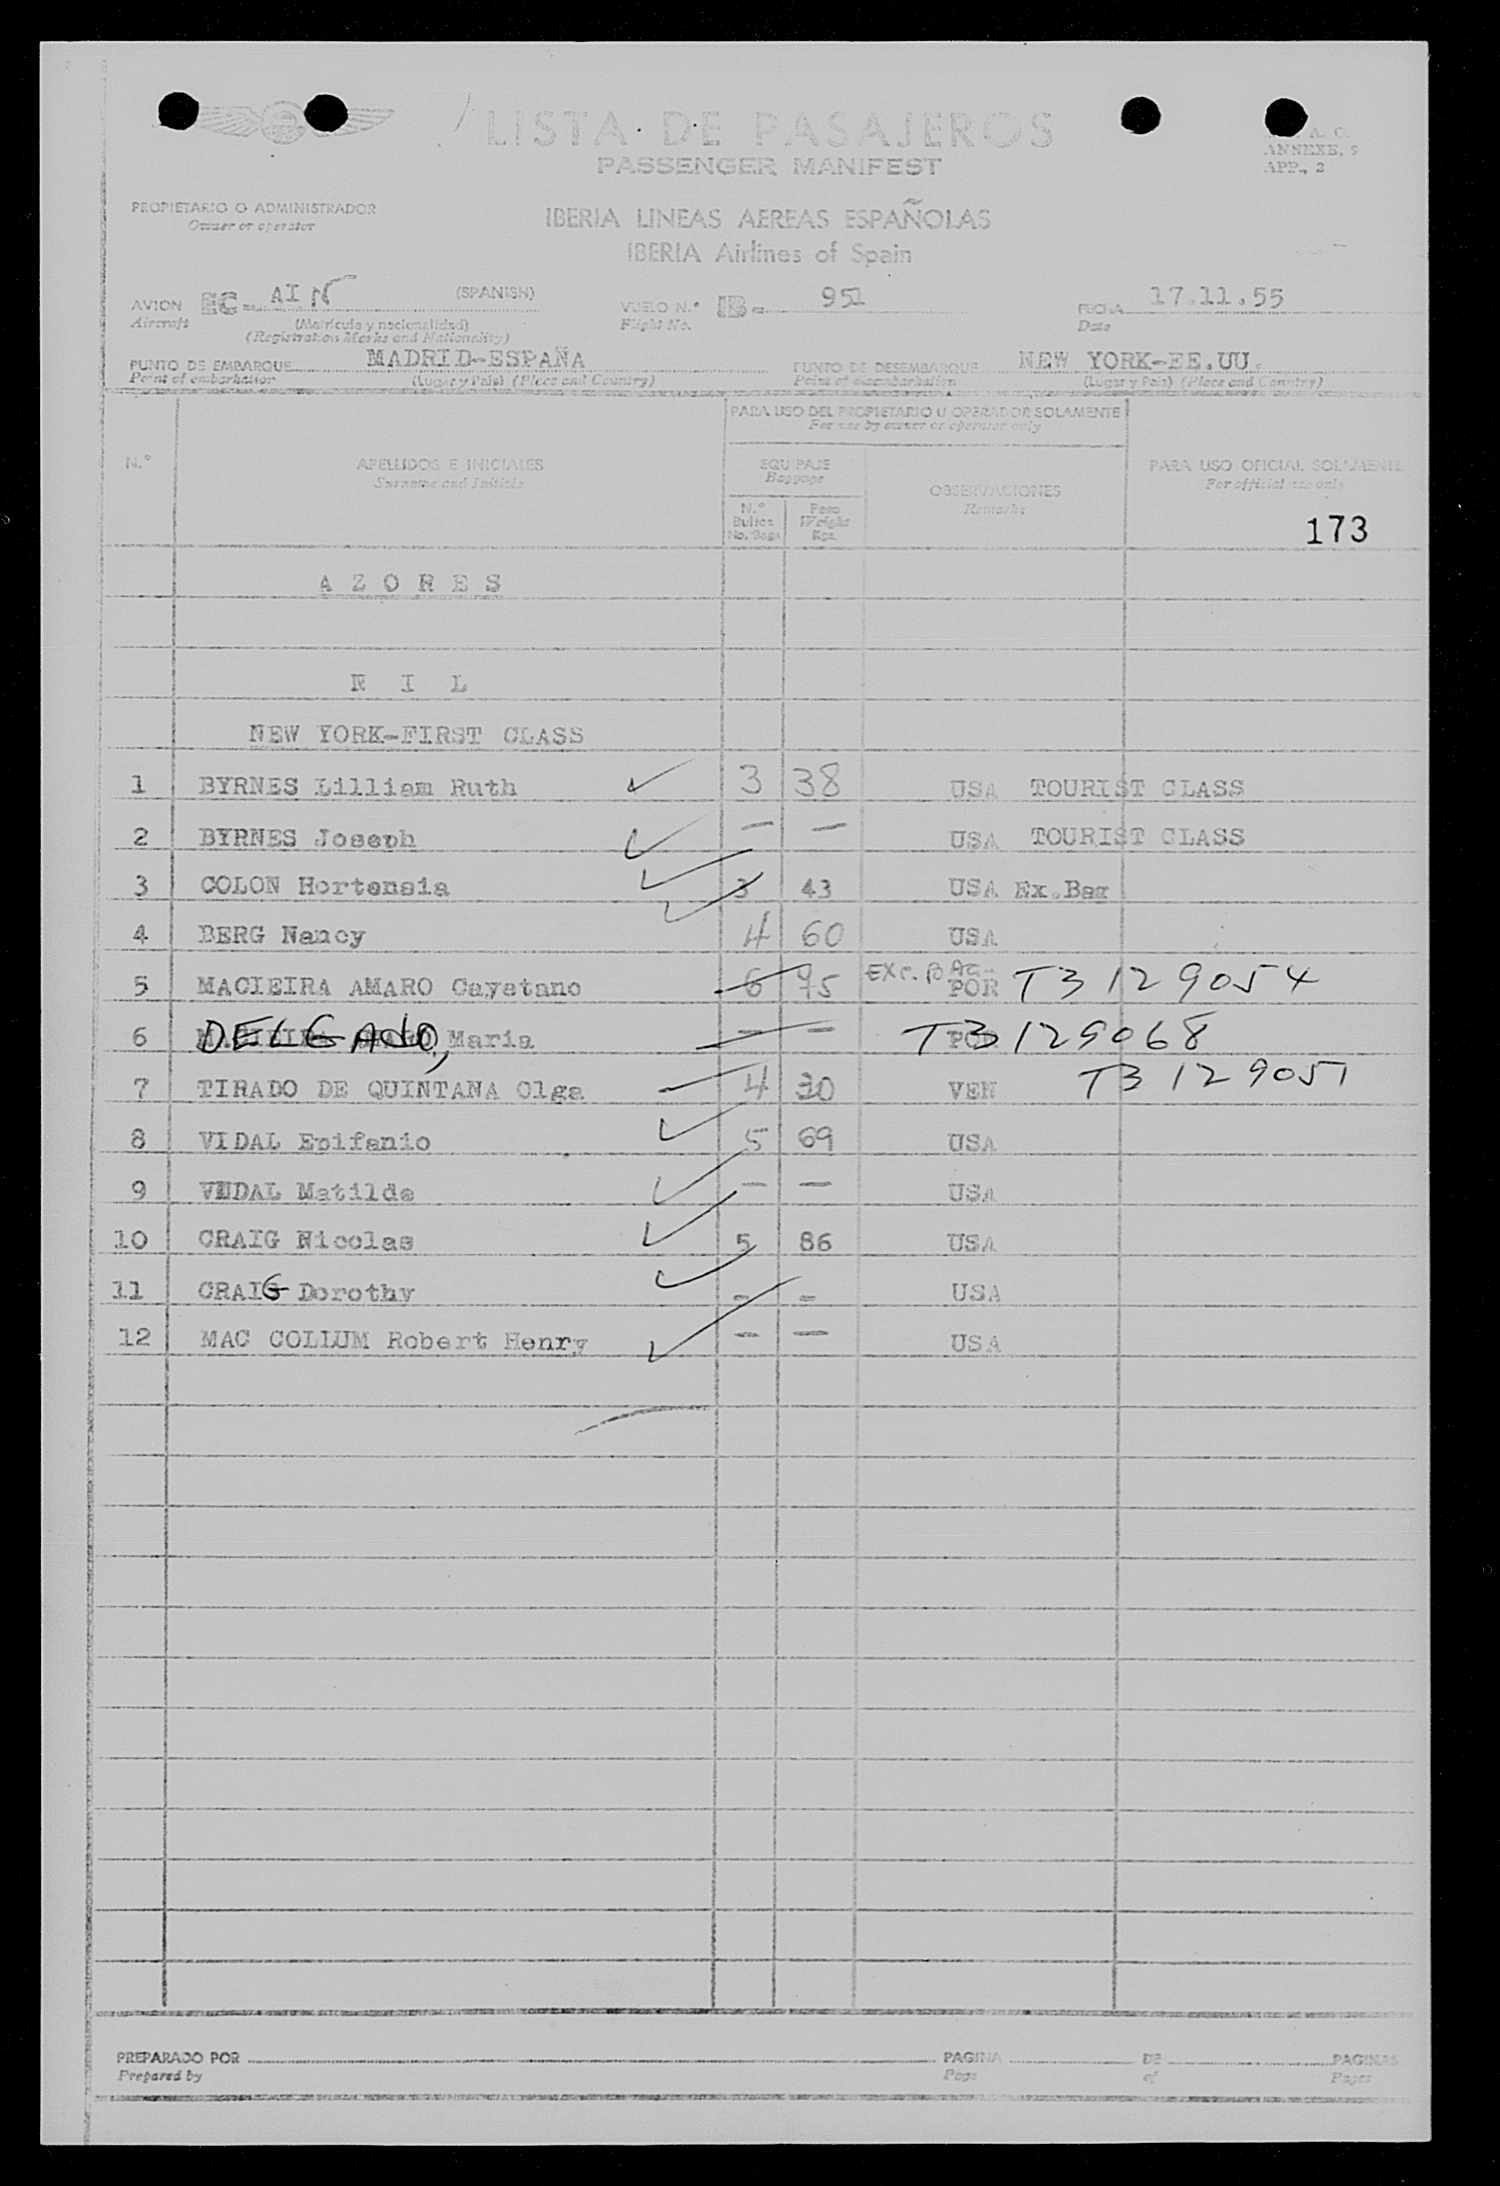 LISTA DE PASAJEROS
PASSENGER MANIFEST
A. C.
ANNEXE, 9
APP., 2
PROPIETARIO O ADMINISTRADOR
Owner or operator
IBERIA LINEAS AEREAS ESPAÑOLAS
IBERIA Airlines of Spain
AVION EC- AIN (SPANISH) VUELO N.° IB- 951 FECHA 17.11.55
Aircraft (Matrícula y nacionalidad) Flight No. Date
(Registration Marks and Nationality)
PUNTO DE EMBARQUE MADRID-ESPAÑA PUNTO DE DESEMBARQUE NEW YORK-EE.UU.
Point of embarkation (Lugar y País) (Place and Country) Point of disembarkation (Lugar y País) (Place and Country)
PARA USO DEL PROPIETARIO U OPERADOR SOLAMENTE
For use by owner or operator only
N.° APELLIDOS E INICIALES EQUIPAJE PARA USO OFICIAL SOLAMENTE
Surname and Initials Baggage For official use only
OBSERVACIONES
Remarks
N.° Bultos Peso
No. Bags Weight Kgs.
173
AZORES
NIL
NEW YORK-FIRST CLASS
1 BYRNES Lilliam Ruth 3 38 USA TOURIST CLASS
2 BYRNES Joseph — — USA TOURIST CLASS
3 COLON Hortensia 3 43 USA Ex.Bag
4 BERG Nancy 4 60 USA
5 MACIEIRA AMARO Cayetano 6 75 EXC. BAG- POR T3 129054
6 DELGADO, Maria — — POR T3 129068
7 TIRADO DE QUINTANA Olga 4 30 VEN T3 129051
8 VIDAL Epifanio 5 69 USA
9 VIDAL Matilde — — USA
10 CRAIG Nicolas 5 86 USA
11 CRAIG Dorothy - - USA
12 MAC COLLUM Robert Henry — — USA
PREPARADO POR PAGINA DE PAGINAS
Prepared by Page of Pages